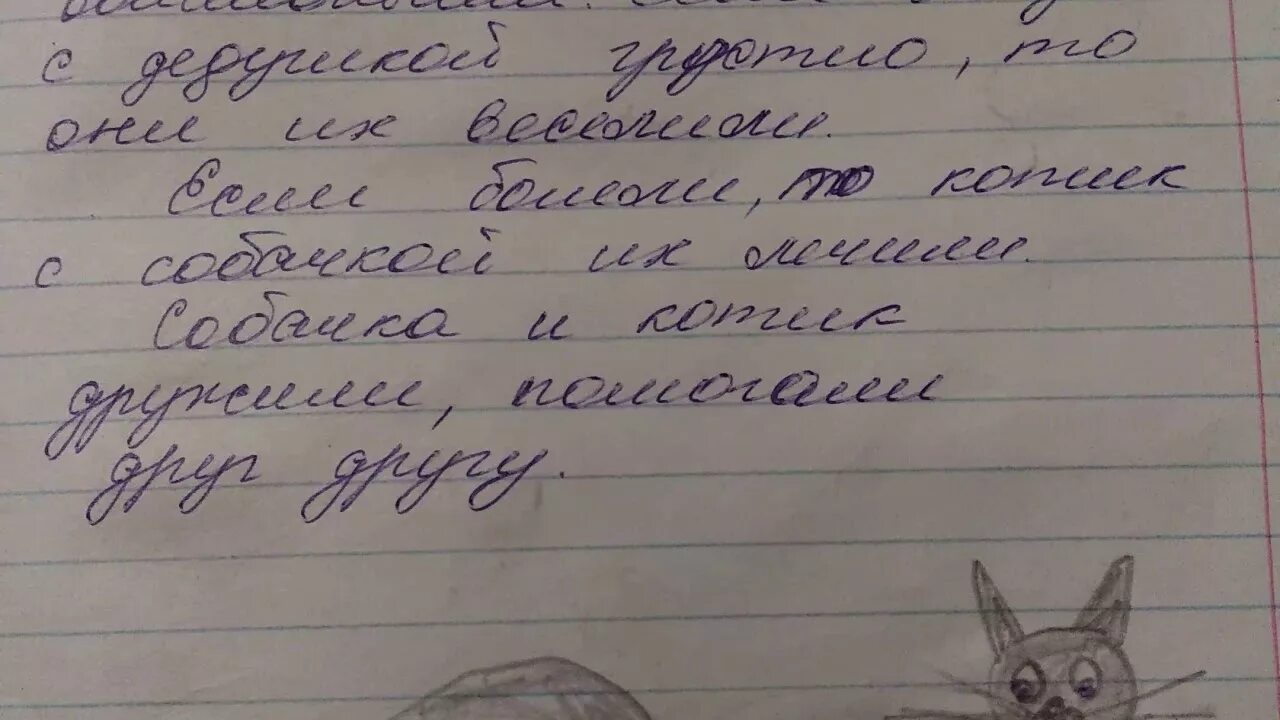 с дедушкой грустно, то
они их веселили.
Если болели, то котик
с собачкой их лечили.
Собачка и котик
дружили, помогали
друг другу.